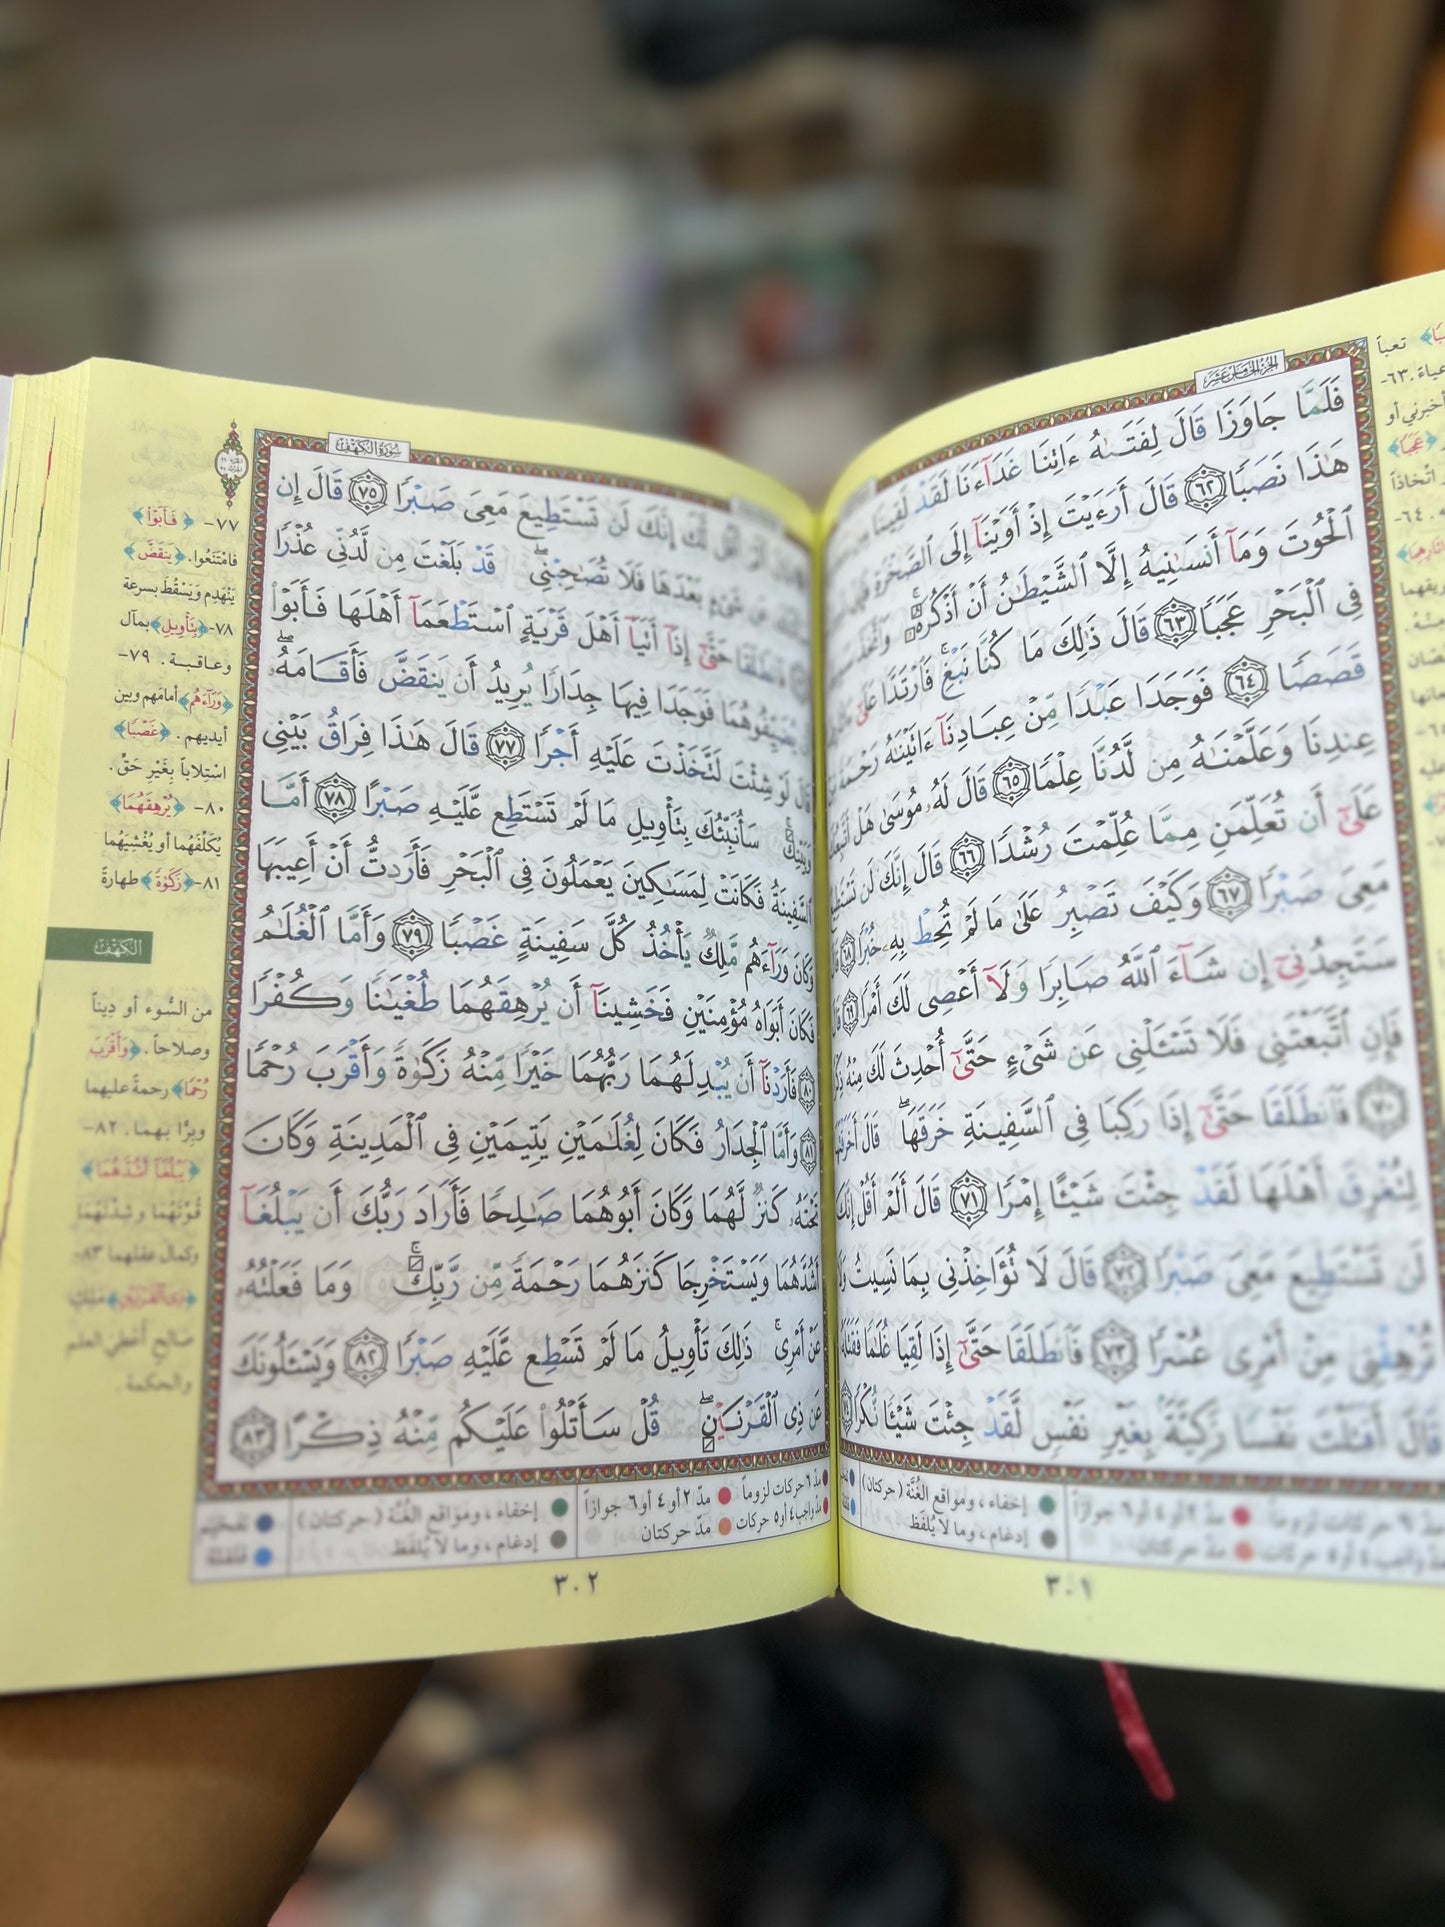 الجُزْءُ الخَامِسَ عَشَرَ
فَلَمَّا جَاوَزَا قَالَ لِفَتَىٰهُ ءَاتِنَا غَدَآءَنَا لَقَدْ لَقِينَا
هَٰذَا نَصَبًا ٦٢ قَالَ أَرَءَيْتَ إِذْ أَوَيْنَآ إِلَى ٱلصَّخْرَةِ
ٱلْحُوتَ وَمَآ أَنسَىٰنِيهُ إِلَّا ٱلشَّيْطَٰنُ أَنْ أَذْكُرَهُۥ ۚ وَٱتَّخَذَ
فِى ٱلْبَحْرِ عَجَبًا ٦٣ قَالَ ذَٰلِكَ مَا كُنَّا نَبْغِ ۚ فَٱرْتَدَّا عَلَىٰٓ
قَصَصًا ٦٤ فَوَجَدَا عَبْدًا مِّنْ عِبَادِنَآ ءَاتَيْنَٰهُ رَحْمَةً
عِندِنَا وَعَلَّمْنَٰهُ مِن لَّدُنَّا عِلْمًا ٦٥ قَالَ لَهُۥ مُوسَىٰ هَلْ أَتَّبِعُكَ
عَلَىٰٓ أَن تُعَلِّمَنِ مِمَّا عُلِّمْتَ رُشْدًا ٦٦ قَالَ إِنَّكَ لَن تَسْتَطِيعَ
مَعِىَ صَبْرًا ٦٧ وَكَيْفَ تَصْبِرُ عَلَىٰ مَا لَمْ تُحِطْ بِهِۦ خُبْرًا ٦٨
سَتَجِدُنِىٓ إِن شَآءَ ٱللَّهُ صَابِرًا وَلَآ أَعْصِى لَكَ أَمْرًا ٦٩
فَإِنِ ٱتَّبَعْتَنِى فَلَا تَسْـَٔلْنِى عَن شَىْءٍ حَتَّىٰٓ أُحْدِثَ لَكَ مِنْهُ
٧٠ فَٱنطَلَقَا حَتَّىٰٓ إِذَا رَكِبَا فِى ٱلسَّفِينَةِ خَرَقَهَا ۖ قَالَ أَخَرَقْتَهَا
لِتُغْرِقَ أَهْلَهَا لَقَدْ جِئْتَ شَيْـًٔا إِمْرًا ٧١ قَالَ أَلَمْ أَقُلْ إِنَّكَ
لَن تَسْتَطِيعَ مَعِىَ صَبْرًا ٧٢ قَالَ لَا تُؤَاخِذْنِى بِمَا نَسِيتُ وَلَا
تُرْهِقْنِى مِنْ أَمْرِى عُسْرًا ٧٣ فَٱنطَلَقَا حَتَّىٰٓ إِذَا لَقِيَا غُلَٰمًا فَقَتَلَهُۥ
قَالَ أَقَتَلْتَ نَفْسًا زَكِيَّةًۢ بِغَيْرِ نَفْسٍ لَّقَدْ جِئْتَ شَيْـًٔا نُّكْرًا ٧٤
مدّ ٦ حركات لزوماً مدّ ٢ أو ٤ أو ٦ جوازاً إخفاء ، ومواقع الغُنَّة (حركتان)
مدّ واجب ٤ أو ٥ حركات مدّ حركتان إدغام ، وما لا يُلفَظ
٣٠١
سُورَةُ الكَهْفِ
لَّكَ إِنَّكَ لَن تَسْتَطِيعَ مَعِىَ صَبْرًا ٧٥ قَالَ إِن
عَن شَىْءٍۭ بَعْدَهَا فَلَا تُصَٰحِبْنِى ۖ قَدْ بَلَغْتَ مِن لَّدُنِّى عُذْرًا
فَٱنطَلَقَا حَتَّىٰٓ إِذَآ أَتَيَآ أَهْلَ قَرْيَةٍ ٱسْتَطْعَمَآ أَهْلَهَا فَأَبَوْا۟
يُضَيِّفُوهُمَا فَوَجَدَا فِيهَا جِدَارًا يُرِيدُ أَن يَنقَضَّ فَأَقَامَهُۥ ۖ
قَالَ لَوْ شِئْتَ لَتَّخَذْتَ عَلَيْهِ أَجْرًا ٧٧ قَالَ هَٰذَا فِرَاقُ بَيْنِى
وَبَيْنِكَ ۚ سَأُنَبِّئُكَ بِتَأْوِيلِ مَا لَمْ تَسْتَطِع عَّلَيْهِ صَبْرًا ٧٨ أَمَّا
ٱلسَّفِينَةُ فَكَانَتْ لِمَسَٰكِينَ يَعْمَلُونَ فِى ٱلْبَحْرِ فَأَرَدتُّ أَنْ أَعِيبَهَا
وَكَانَ وَرَآءَهُم مَّلِكٌ يَأْخُذُ كُلَّ سَفِينَةٍ غَصْبًا ٧٩ وَأَمَّا ٱلْغُلَٰمُ
فَكَانَ أَبَوَاهُ مُؤْمِنَيْنِ فَخَشِينَآ أَن يُرْهِقَهُمَا طُغْيَٰنًا وَكُفْرًا
٨٠ فَأَرَدْنَآ أَن يُبْدِلَهُمَا رَبُّهُمَا خَيْرًا مِّنْهُ زَكَوٰةً وَأَقْرَبَ رُحْمًا
٨١ وَأَمَّا ٱلْجِدَارُ فَكَانَ لِغُلَٰمَيْنِ يَتِيمَيْنِ فِى ٱلْمَدِينَةِ وَكَانَ
تَحْتَهُۥ كَنزٌ لَّهُمَا وَكَانَ أَبُوهُمَا صَٰلِحًا فَأَرَادَ رَبُّكَ أَن يَبْلُغَآ
أَشُدَّهُمَا وَيَسْتَخْرِجَا كَنزَهُمَا رَحْمَةً مِّن رَّبِّكَ ۚ وَمَا فَعَلْتُهُۥ
عَنْ أَمْرِى ۚ ذَٰلِكَ تَأْوِيلُ مَا لَمْ تَسْطِع عَّلَيْهِ صَبْرًا ٨٢ وَيَسْـَٔلُونَكَ
عَن ذِى ٱلْقَرْنَيْنِ ۖ قُلْ سَأَتْلُوا۟ عَلَيْكُم مِّنْهُ ذِكْرًا ٨٣
٧٧- ﴿فَأَبَوْا﴾
فامْتَنَعُوا. ﴿يَنقَضَّ﴾
يَنْهَدِم وَيَسْقُطَ بسرعة
٧٨- ﴿بِتَأْوِيلِ﴾ بمآل
وعاقبة. ٧٩-
﴿وَرَآءَهُم﴾ أمامَهم وبين
أيديهم. ﴿غَصْبًا﴾
استِلاباً بِغَيْرِ حَقٍّ.
٨٠- ﴿يُرْهِقَهُمَا﴾
يُكَلِّفَهُما أو يُغْشِيَهُما
٨١- ﴿زَكَوٰةً﴾ طهارةً
الكهف
من السُّوء أو دِيناً
وصلاحاً. ﴿وَأَقْرَبَ
رُحْمًا﴾ رحمةً عليهما
وبِرّاً بهما. ٨٢-
﴿يَبْلُغَآ أَشُدَّهُمَا﴾
قُوَّتَهُما وشِدَّتَهُما
وكمالَ عقلهما ٨٣-
﴿ذِى ٱلْقَرْنَيْنِ﴾ مَلِكٍ
صالحٍ أُعْطِيَ العلم
والحكمة.
مدّ ٦ حركات لزوماً مدّ ٢ أو ٤ أو ٦ جوازاً إخفاء ، ومواقع الغُنَّة (حركتان) تفخيم
مدّ واجب ٤ أو ٥ حركات مدّ حركتان إدغام ، وما لا يُلفَظ قلقلة
٣٠٢